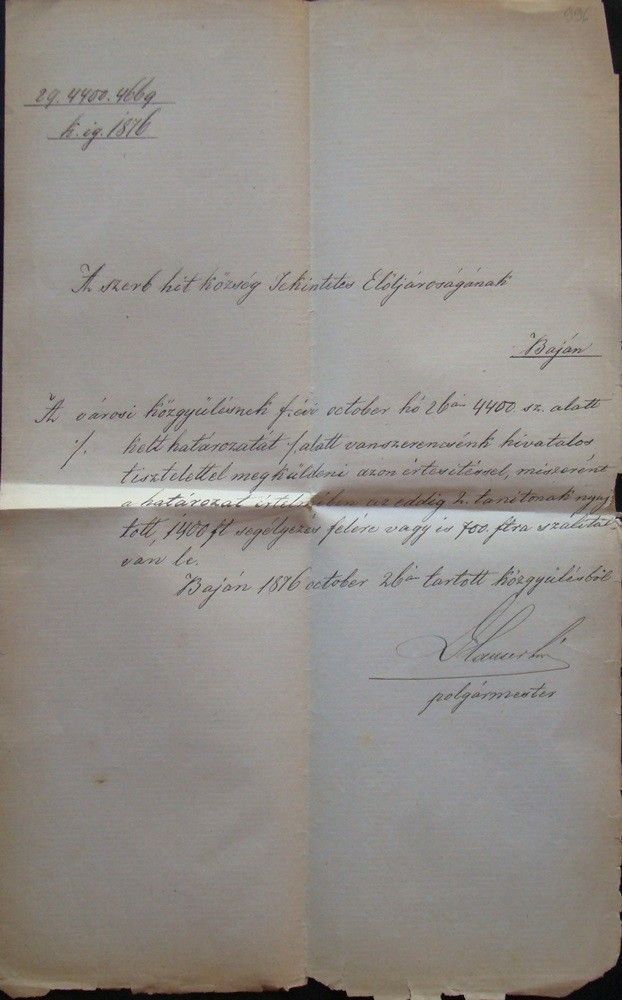 996
29. 4400. 4669
k. ig. 1876
Az szerb hit község Tekintetes Elöljároságának
Baján
Az városi közgyülésnek f. évi october hó 26án 4400 sz. alatt
·/. kelt határozatát ·/. alatt van szerencsénk hivatalos
tisztelettel megküldeni azon értesitéssel, miszerént
a határozat értelmében az eddig 2. tanitónak nyuj
tott, 1400 ft segélyezés felére vagy is 700. ftra szálitat
van le.
Baján 1876 october 26án tartott közgyülésből
polgármester